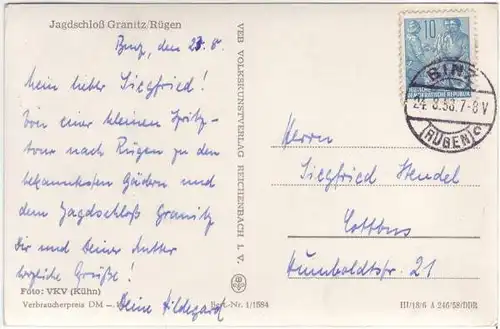 Jagdschloß Granitz/Rügen
Binz, den 23. 8.
Mein lieber Siegfried!
Von einer kleinen Spritz-
tour nach Rügen zu den
bekanntesten Bädern und
dem Jagdschloß Granitz
Dir und Deiner Mutter
herzliche Grüße!
Deine Hildegard
Foto: VKV (Kühn)
Verbraucherpreis DM
Best.-Nr. 1/1584
VEB VOLKSKUNSTVERLAG REICHENBACH I. V.
10
DEUTSCHE
DEMOKRATISCHE REPUBLIK
BINZ
24.8.58.7-8V
(RÜGEN)
Herrn
Siegfried Hendel
Cottbus
Humboldtstr. 21
III/18/6 A 246/58/DDR